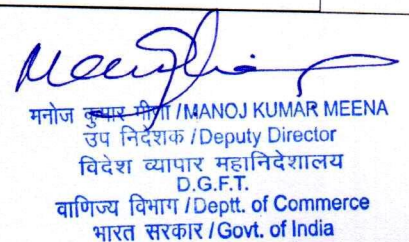 मनोज कुमार मीणा / MANOJ KUMAR MEENA
उप निदेशक / Deputy Director
विदेश व्यापार महानिदेशालय
D.G.F.T.
वाणिज्य विभाग / Deptt. of Commerce
भारत सरकार / Govt. of India